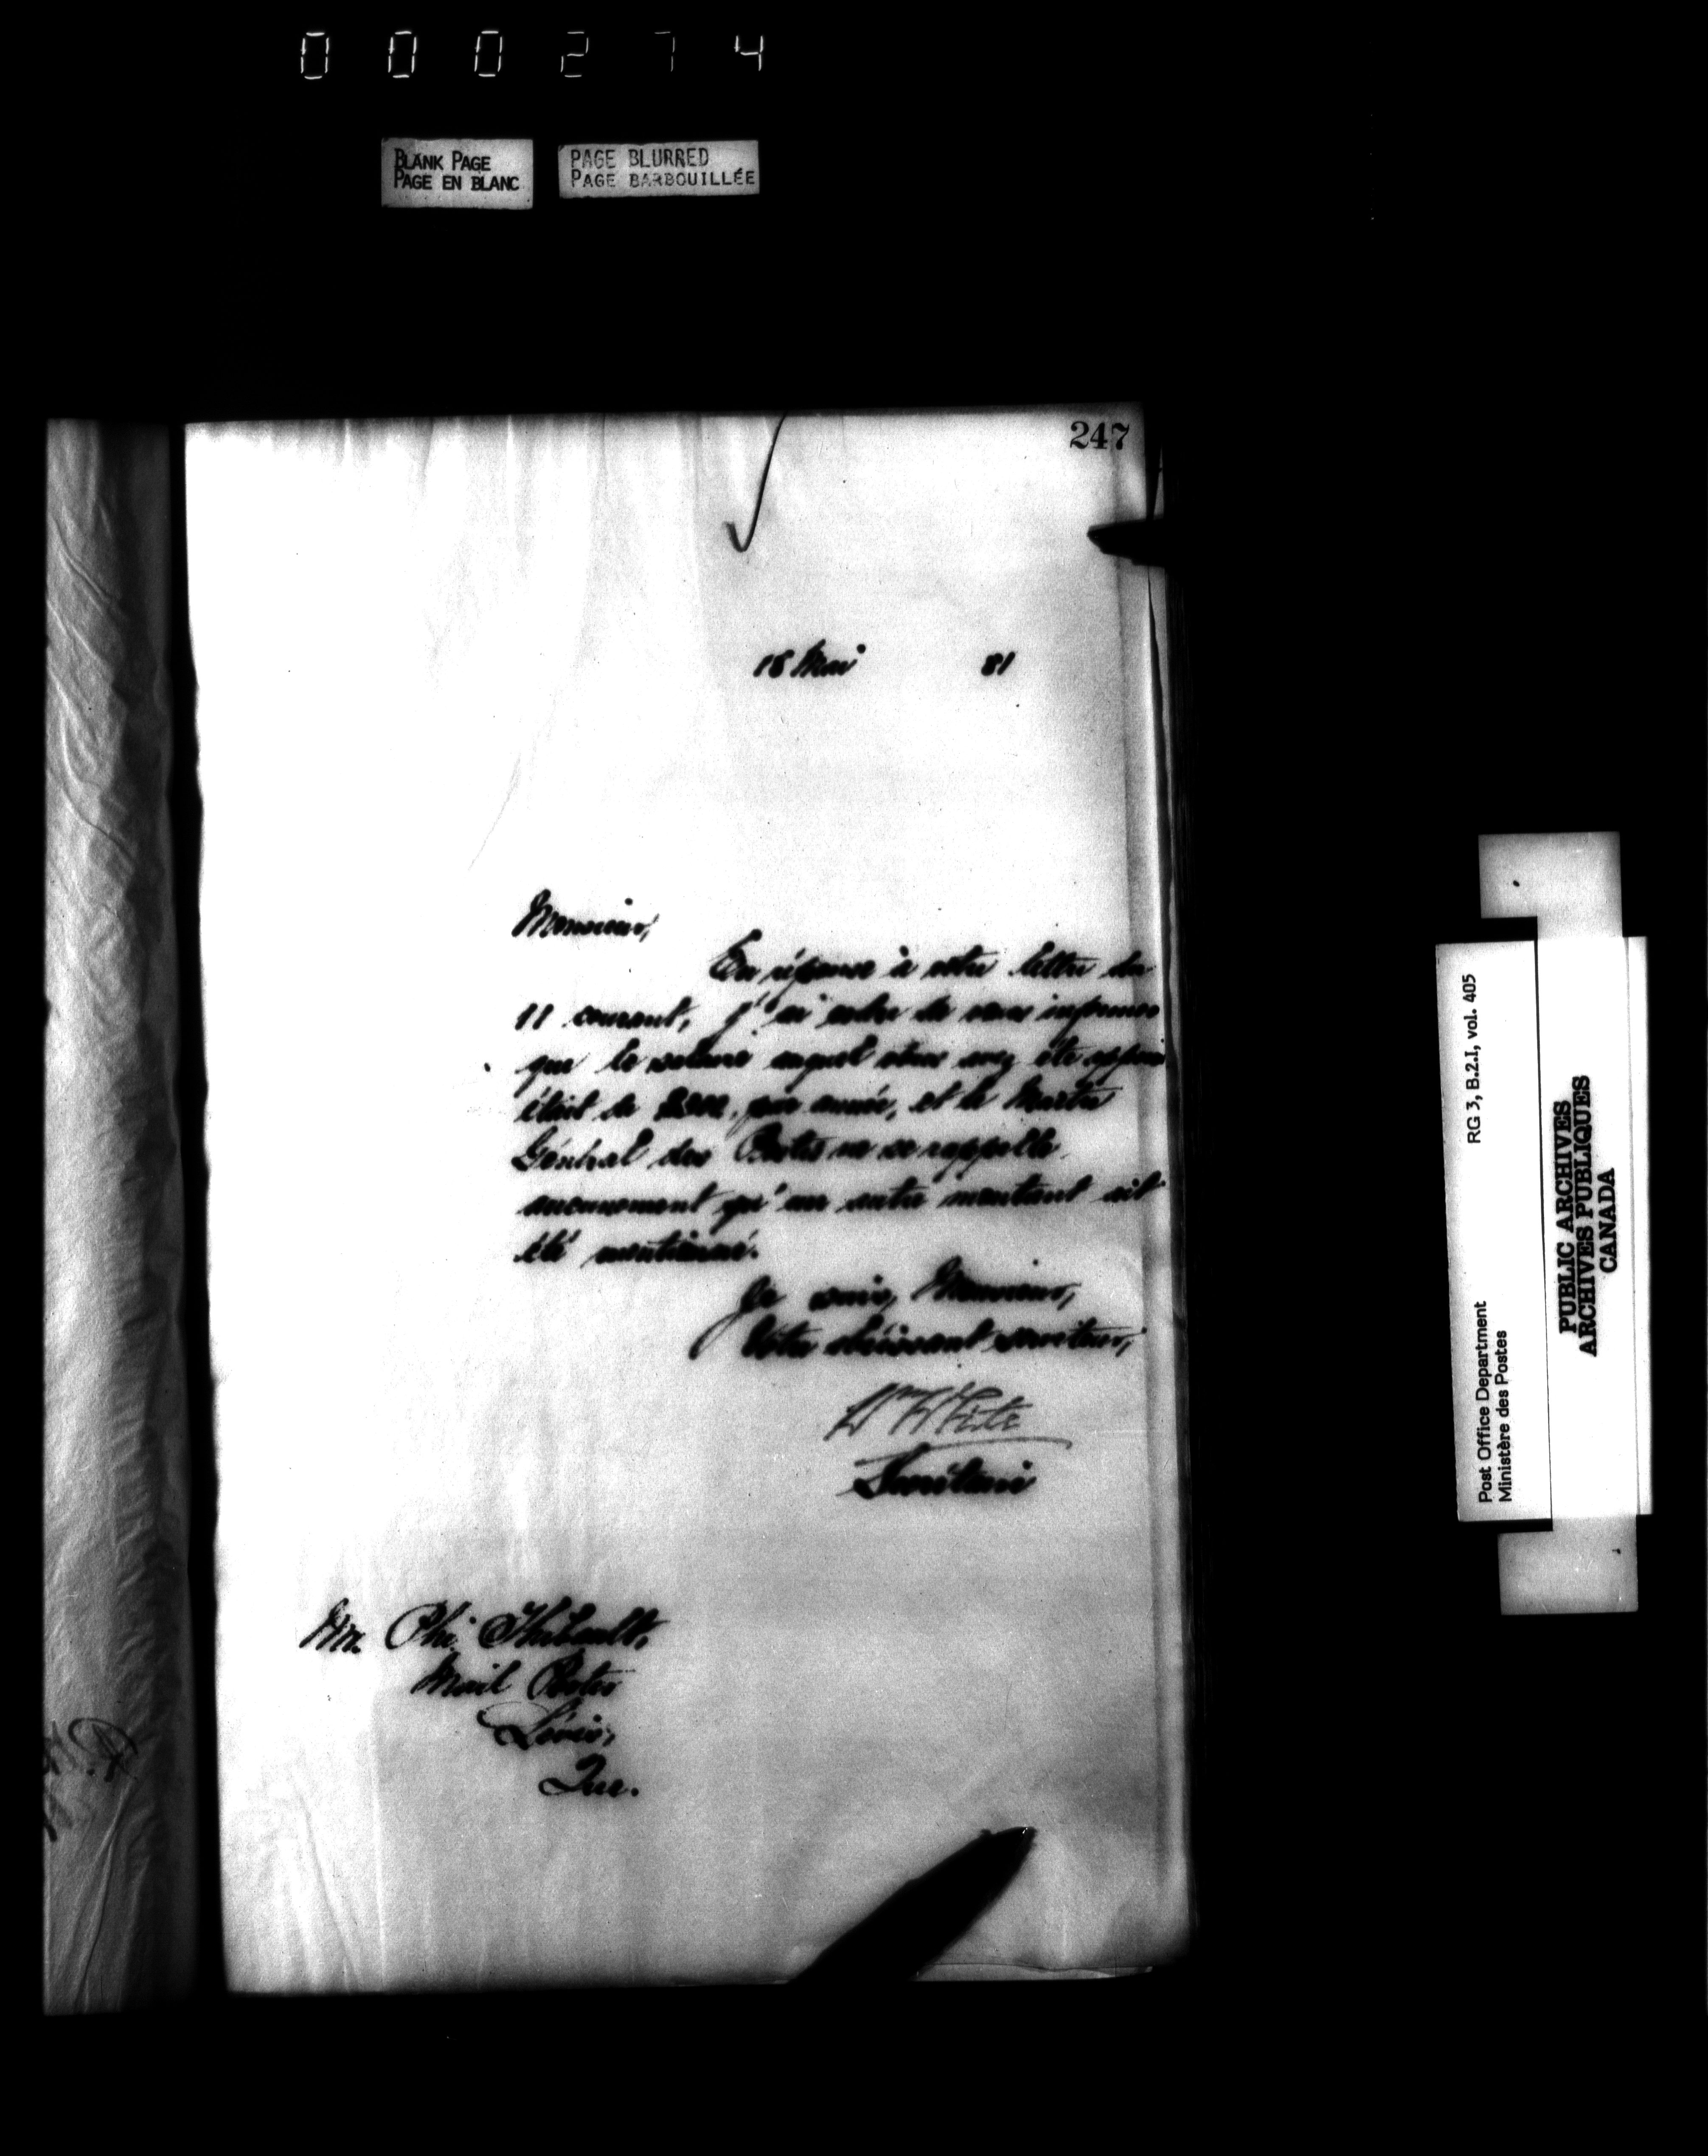 000274
BLANK PAGE
PAGE EN BLANC
PAGE BLURRED
PAGE BARBOUILLÉE
247
18 Mai 81
Monsieur,
En réponse à votre lettre du
11 courant, j'ai ordre de vous informer
que le salaire auquel vous avez été
était de par année, et le Maitre
Général des Postes ne se rappelle
aucunement qu'un autre montant ait
été mentionné.
Je suis, Monsieur,
Votre obéissant serviteur,
Wm White
Secrétaire
Mr. Phi. Thibault,
Mail Porter
Lévis,
Que.
RG 3, B.2.I, vol. 405
Post Office Department
Ministère des Postes
PUBLIC ARCHIVES
ARCHIVES PUBLIQUES
CANADA